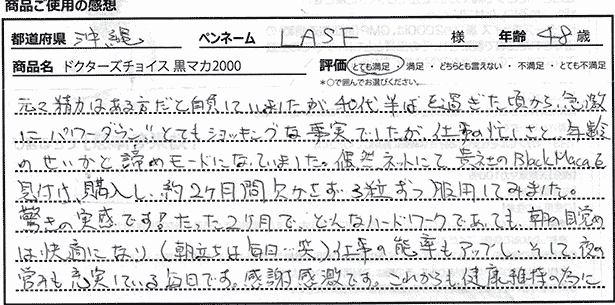 商品ご使用の感想
都道府県 沖縄 ペンネーム LASF 様 年齢 48歳
商品名 ドクターズチョイス 黒マカ2000 評価 とても満足・満足・どちらとも言えない・不満足・とても不満足
*○で囲んでお選びください。
元々精力はある方だと自負していましたが、40代半ばを過ぎた頃から、急激
に"パワーダウン"とてもショッキングな事実でしたが、仕事の忙しさと、年齢
のせいかと諦めモードになっていました。偶然ネットにて貴社のBlack Macaを
見付け、購入し、約2ヶ月間欠かさず、3粒ずつ服用してみました。
驚きの実感です!たった2ヶ月で、どんなハードワークであっても、朝の目覚め
は快適になり(朝立ちは毎日…笑)仕事の能率もアップし、そして、夜の
営みも充実している毎日です。感謝感激です。これからも健康維持の為に